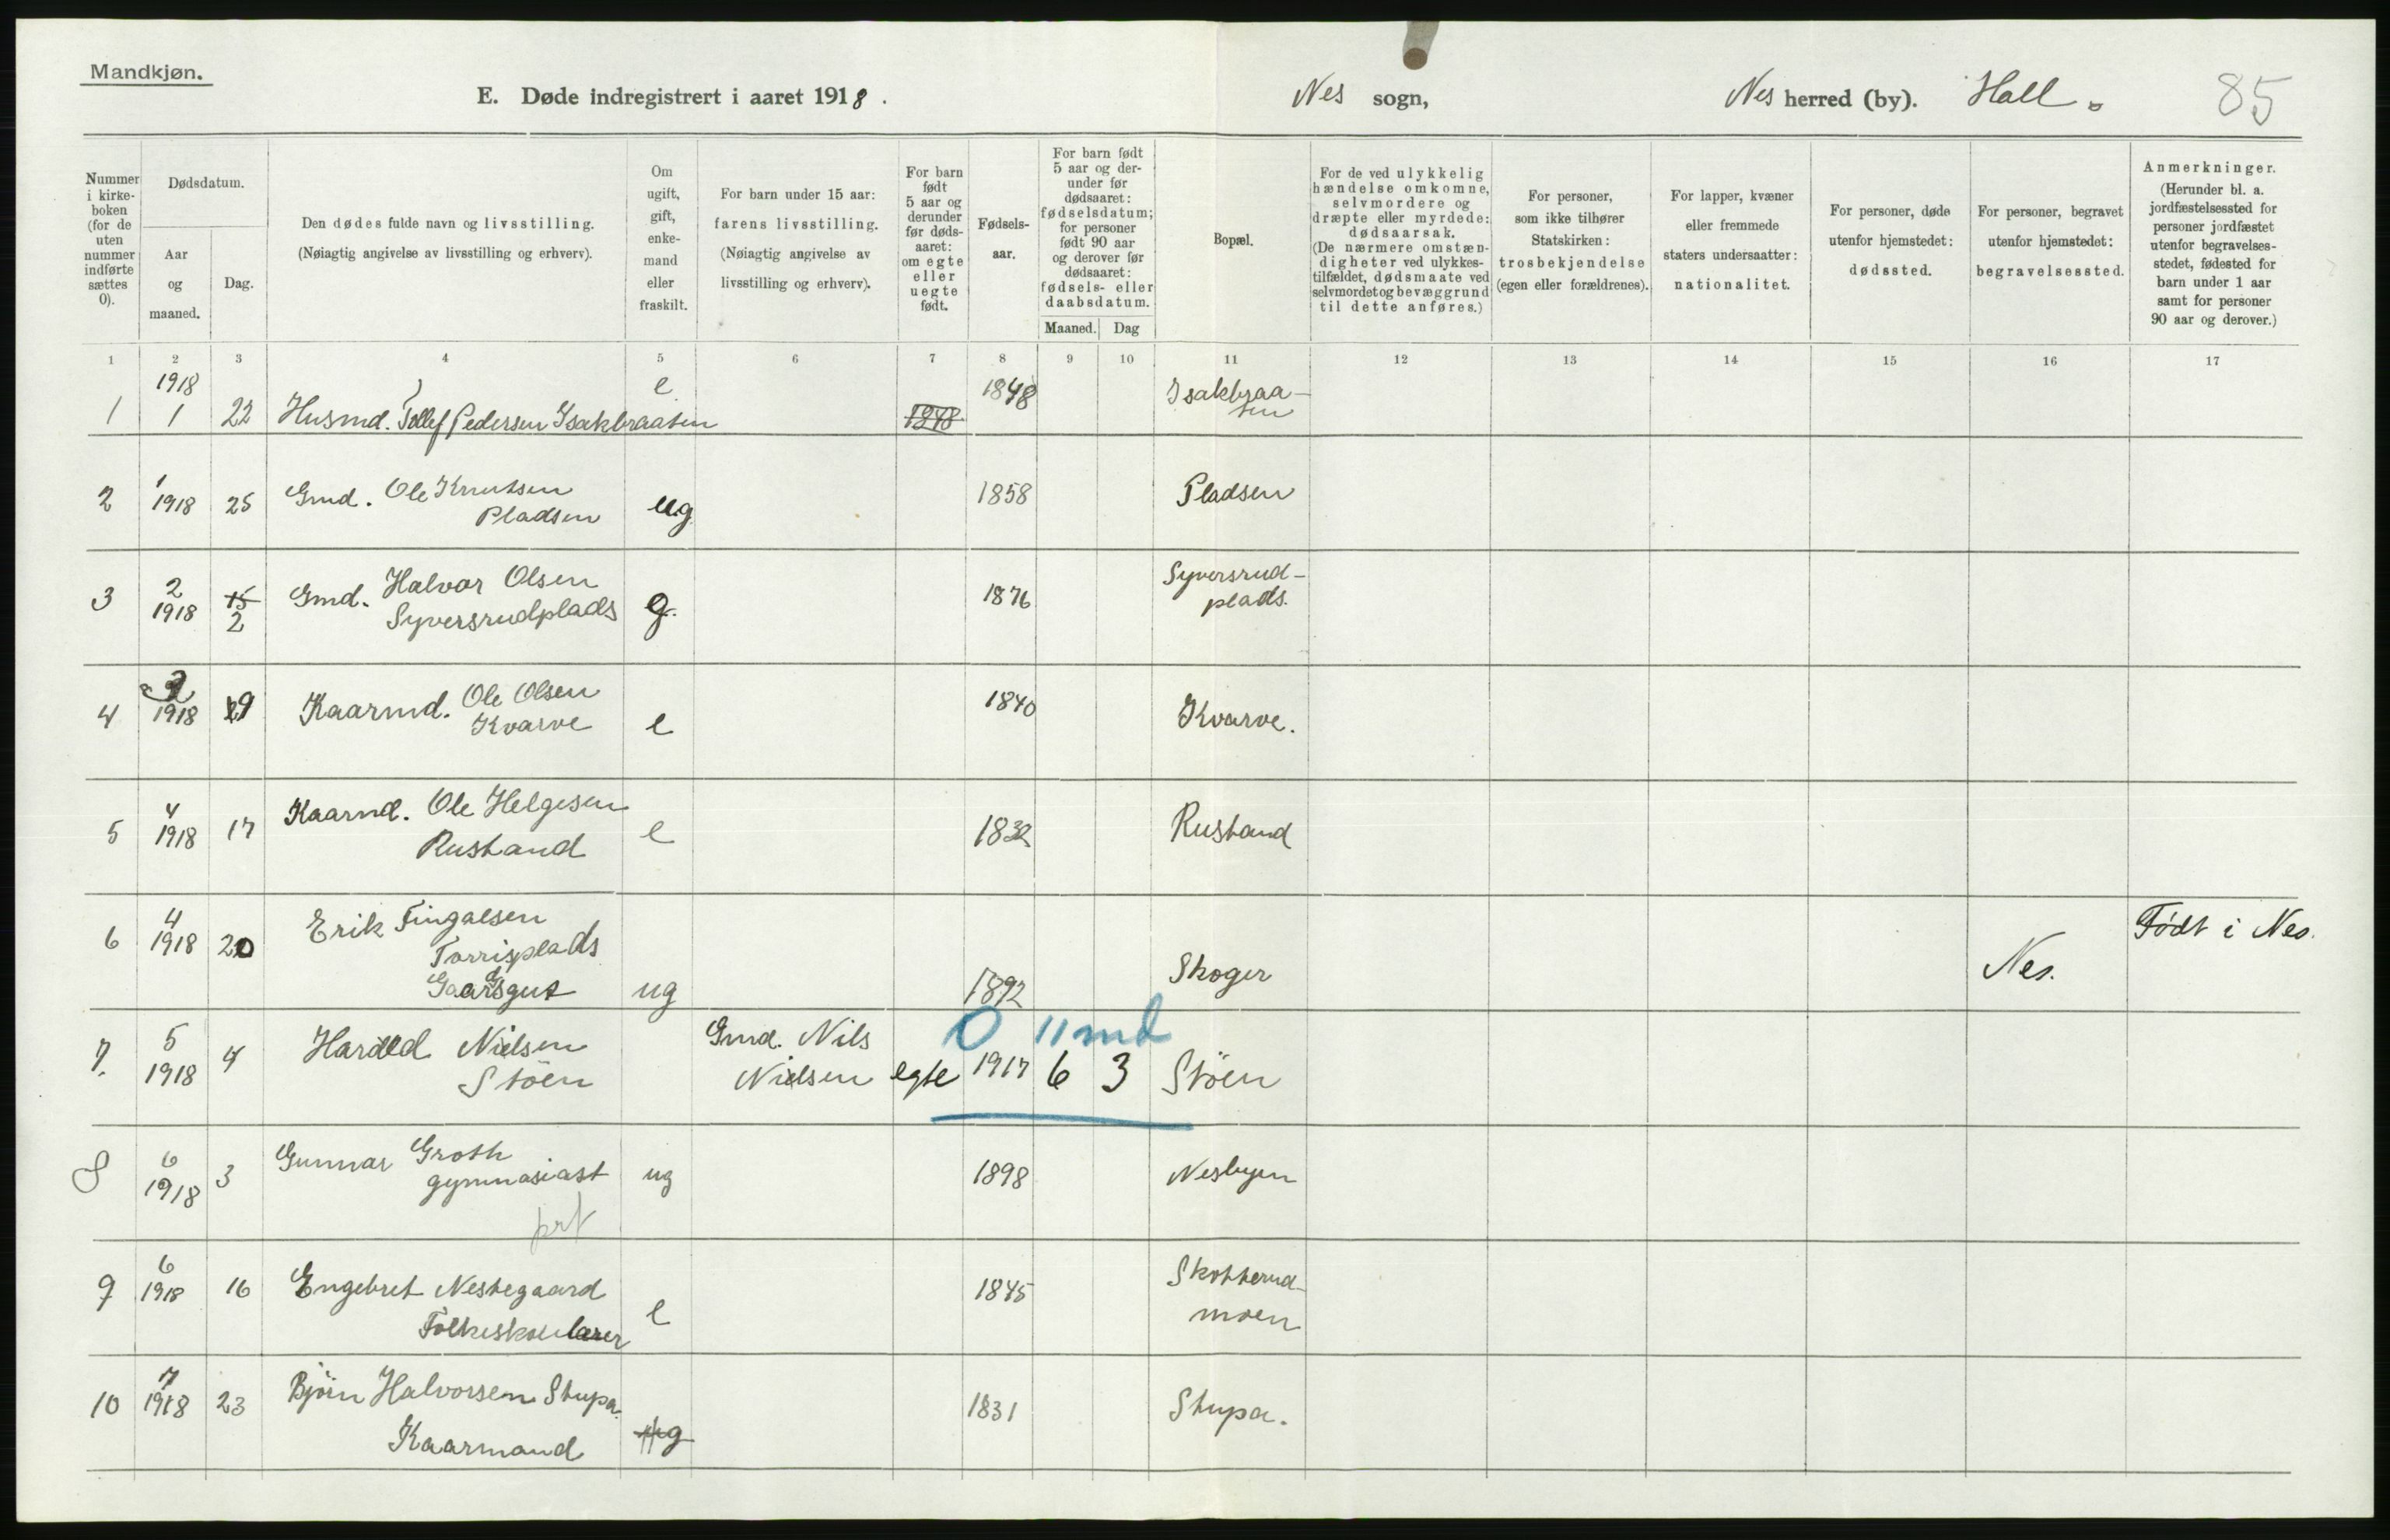 Mandkjøn.
E. Døde indregistrert i aaret 1918.
Nes sogn,
Nes herred (by). Hall.
85
Nummer i kirke-boken (for de uten nummer indførte sættes 0).
Dødsdatum.
Aar og maaned.
Dag.
Den dødes fulde navn og livsstilling.
(Nøiagtig angivelse av livsstilling og erhverv).
Om ugift, gift, enke-mand eller fraskilt.
For barn under 15 aar:
farens livsstilling.
(Nøiagtig angivelse av livsstilling og erhverv).
For barn født 5 aar og derunder før døds-aaret: om egte eller uegte født.
Fødsels-aar.
For barn født 5 aar og der-under før dødsaaret: fødselsdatum; for personer født 90 aar og derover før dødsaaret: fødsels- eller daabsdatum.
Maaned.
Dag
Bopæl.
For de ved ulykkelig hændelse omkomne, selvmordere og dræpte eller myrdede: dødsaarsak.
(De nærmere omstæn-digheter ved ulykkes-tilfældet, dødsmaate ved selvmordet og bevæggrund til dette anføres.)
For personer, som ikke tilhører Statskirken: trosbekjendelse (egen eller forældrenes).
For lapper, kvæner eller fremmede staters undersaatter: nationalitet.
For personer, døde utenfor hjemstedet: dødssted.
For personer, begravet utenfor hjemstedet: begravelsessted.
Anmerkninger.
(Herunder bl. a. jordfæstelsessted for personer jordfæstet utenfor begravelses-stedet, fødested for barn under 1 aar samt for personer 90 aar og derover.)
1 2 3 4 5 6 7 8 9 10 11 12 13 14 15 16 17
1 1918 1 22 Husmd. Tollef Pedersen Isakbraaten e 1848 1848 Isakbraa-
ten
2 1 1918 25 Gmd. Ole Knutsen
Pladsen ug 1858 Pladsen
3 2 1918 15 2 Gmd. Halvor Olsen
Syversrudplads g. 1876 Syversrud-
plads.
4 1918 Kaarmd. Ole Olsen
Kvarve e 1840 Kvarve.
5 4 1918 17 Kaarmd. Ole Helgesen
Rustand e 1832 Rustand
6 4 1918 20 Erik Tingalsen
Torrisplads
Gaardsgut ug 1892 Skoger Nes. Født i Nes.
7. 5 1918 4 Harald Nielsen
Stöen Gmd. Nils
Nielsen egte 1917 6 3 Stöen
0 11 md
8 6 1918 3 Gunnar Groth
gymnasiast ug 1898 Nesbyen
prt
9 6 1918 16 Engebret Nestegaard
Folkeskolelærer e 1845 Skotterud-
moen
10 7 1918 23 Björn Halvorsen Stupa.
Kaarmand ug 1831 Stupa.